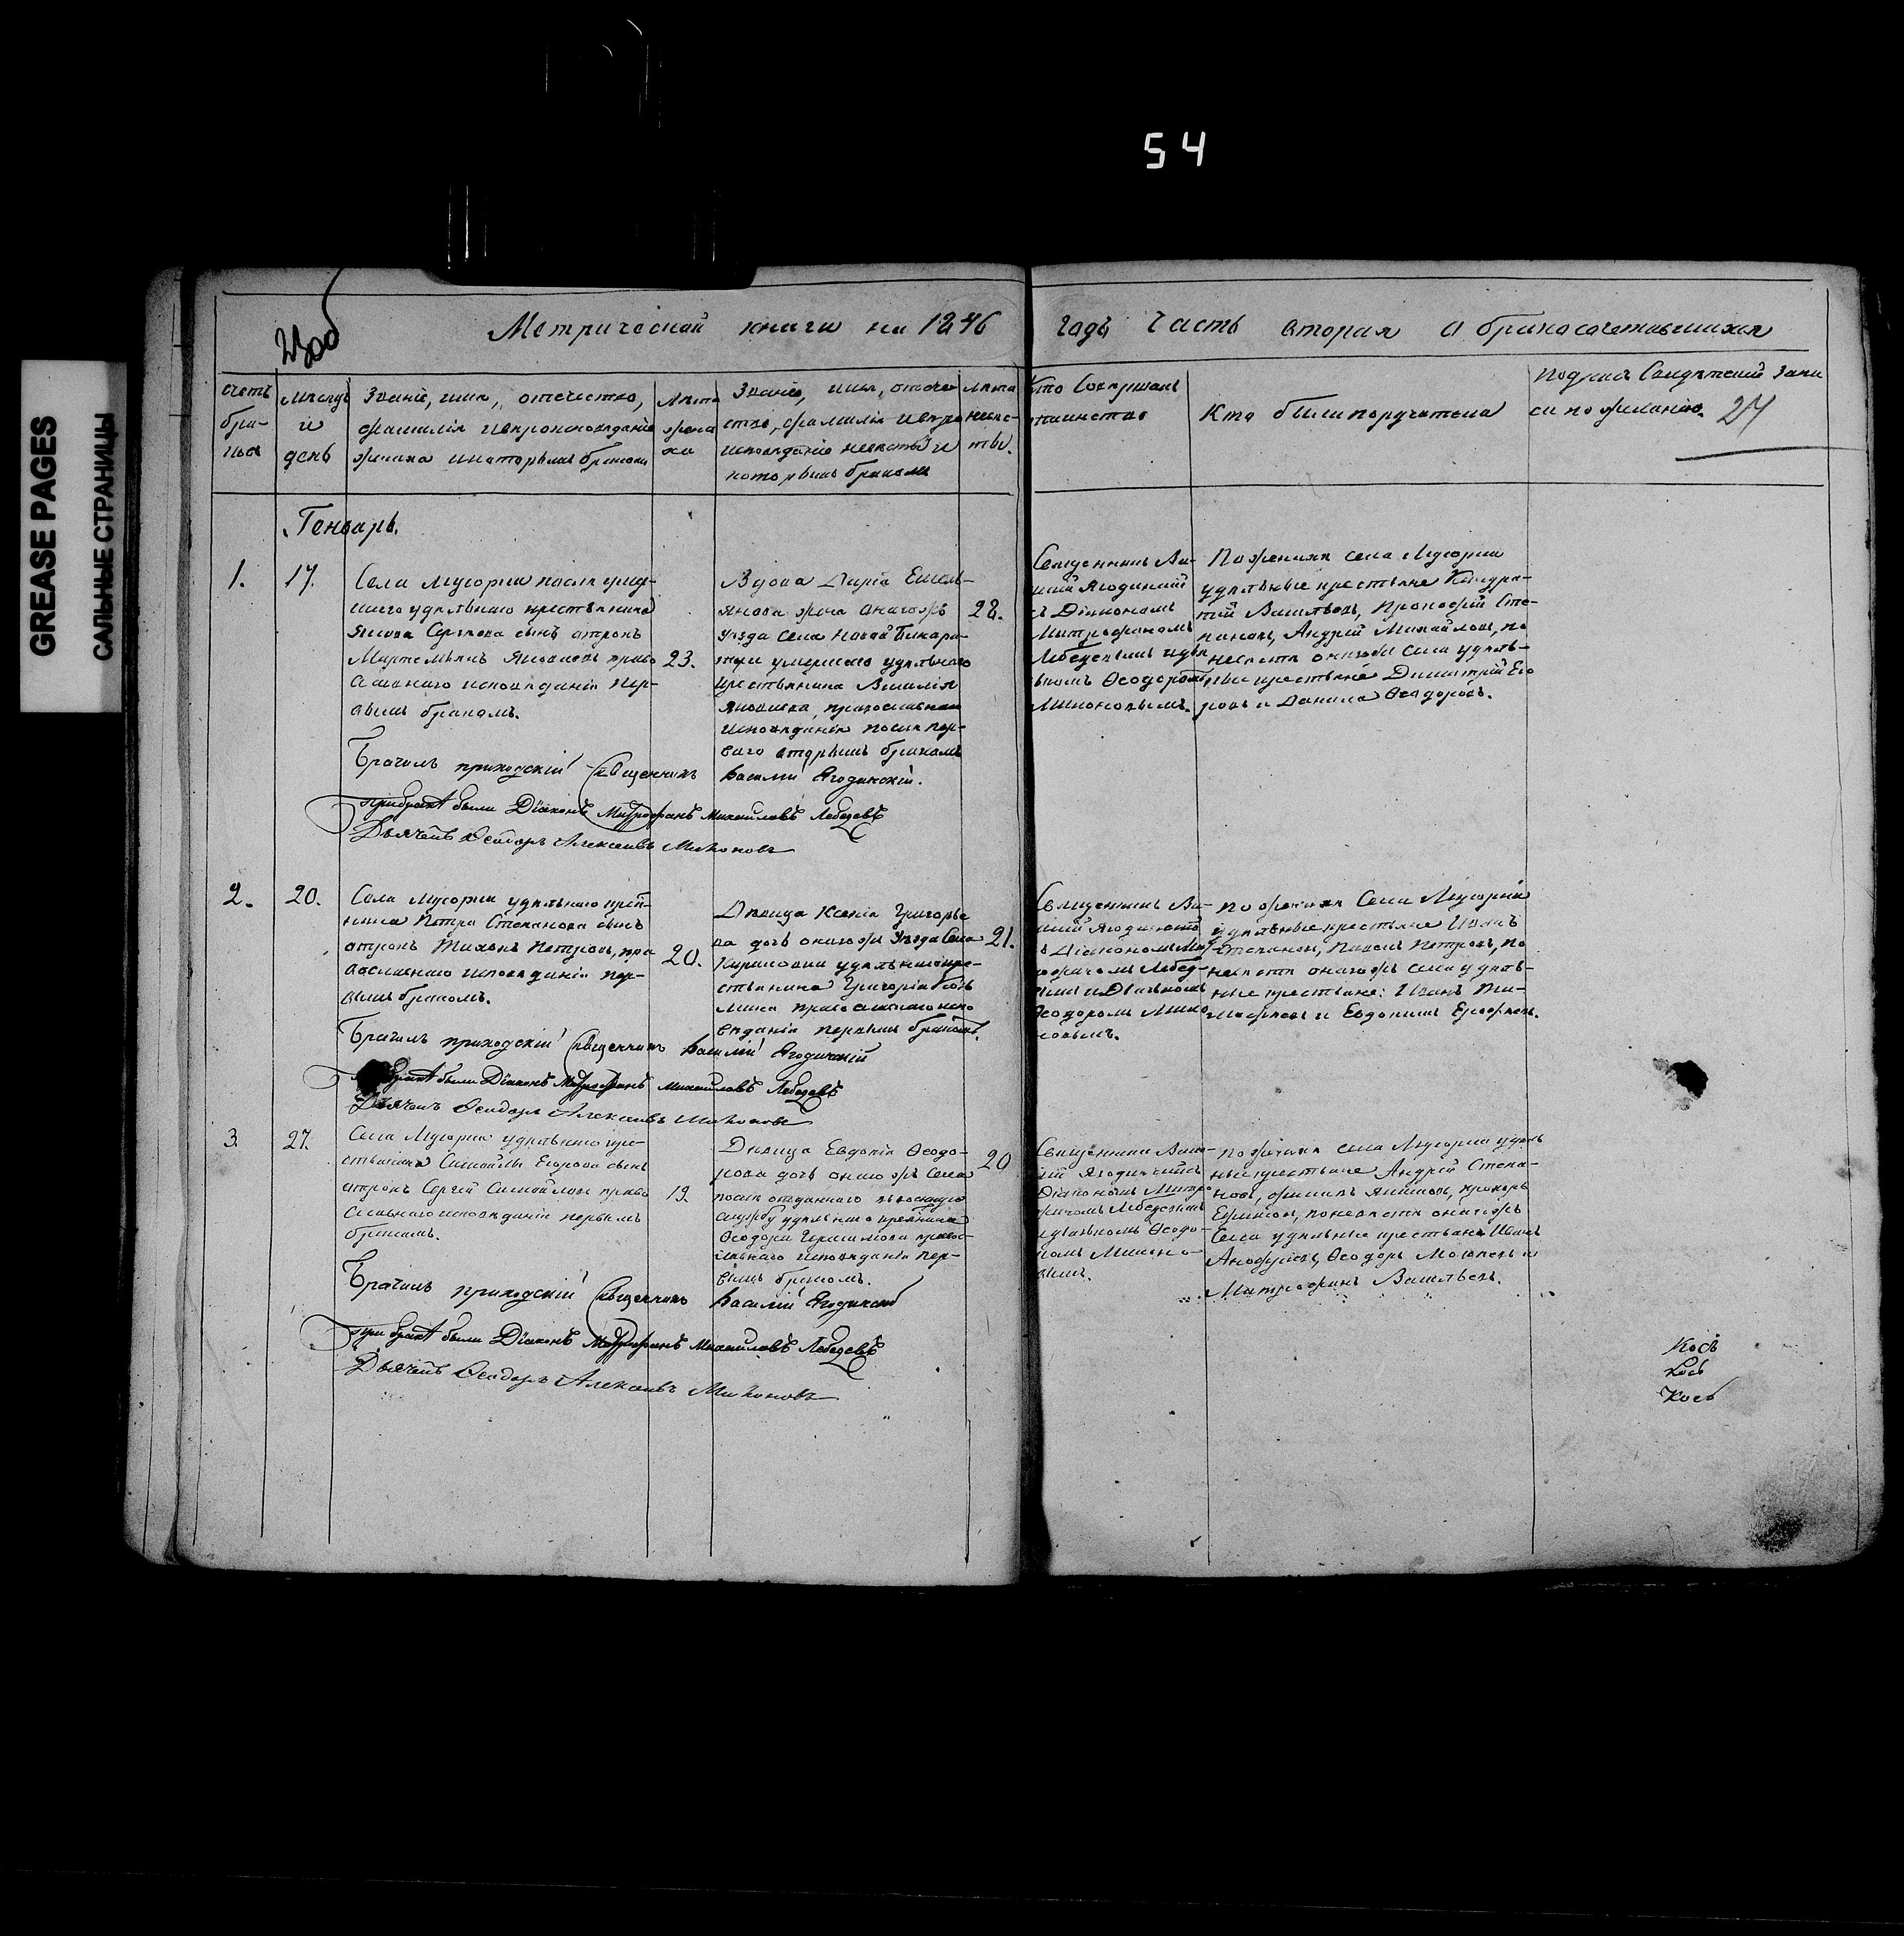 54
GREASE PAGES
САЛЬНЫЕ СТРАНИЦЫ
Метрической книги на 1846 годъ Часть вторая о бракосочетавшихся
27
Счетъ браковъ
Мѣсяцъ
и
день
Званіе, имя, отечество,
фамилія и вѣроисповѣданіе
жениха и которымъ бракомъ
Лѣта
жениха
Званіе, имя, отече
ство, фамилія и вѣро
исповѣданіе невѣсты и
которымъ бракомъ
Лѣта
невѣс-
ты.
Кто Совершалъ
таинство
Кто были поручители
Подписъ Свидѣтелей запи
си по желанію.
Генварь.
1.
17.
Села Мусорки послѣ умер-
шаго удѣльнаго крестьянина
Якова Сергѣева сынъ отрокъ
Мартемьянъ Яковлевъ право
славнаго исповѣданія пер-
вымъ бракомъ.
23.
Вдова Дарія Емель-
янова жена онагожъ
уѣзда села Новой Бинара-
тки умершаго удѣльнаго
крестьянина Василія
Яковлева, православнаго
исповѣданія послѣ пер-
ваго вторымъ бракомъ
28.
Священникъ Ва-
силій Ягодинскій
съ Діякономъ
Митрофаномъ
Лебедевымъ и дья
чкомъ Ѳеодоромъ
Милоновымъ.
По женихѣ села Мусорки
удѣльные крестьяне Кондра-
тій Васильевъ, Прокофій Сте-
пановъ, Андрей Михайловъ, по
невѣстѣ онагожъ села удѣль-
ные крестьяне Димитрій Его
ровъ и Данила Ѳеодоровъ.
Брачилъ приходскій Священникъ Василій Ягодинскій.
При бракѣ были Діаконъ Митрофанъ Михаиловъ Лебедевъ
Дьячекъ Ѳеодоръ Алексѣевъ Милоновъ
2.
20.
Села Мусорки удѣльнаго крестья-
нина Петра Степанова сынъ
отрокъ Тихонъ Петровъ, пра
вославнаго исповѣданія пер-
вымъ бракомъ.
20.
Дѣвица Ксенія Григорье
ва дочь онагожъ Уѣзда Села
Кириловки удѣльнаго кре-
стьянина Григорія
православнаго испо
вѣданія первымъ бракомъ.
21.
Священникъ Ва-
силій Ягодинскій
съ Діякономъ Мит-
рофаномъ Лебед-
евымъ и Дьячкомъ
Ѳеодоромъ Мило
новымъ.
По женихѣ Села Мусорки
удѣльные крестьяне Иванъ
Степановъ, Павелъ Петровъ, по
невѣстѣ онагожъ села удѣль-
ные крестьяне: Иванъ Ти-
мофеевъ и Евдокимъ Ерофеевъ.
Брачилъ приходскій Священникъ Василій Ягодинскій
бракѣ были Діаконъ Митрофанъ Михаиловъ Лебедевъ
Дьячекъ Ѳеодоръ Алексѣевъ Милоновъ
3.
27.
Села Мусорки удѣльнаго кре-
стьянина Самойлы Егорова сынъ
отрокъ Сергѣй Самойловъ право
славнаго исповѣданія первымъ
бракомъ.
19
Дѣвица Евдокія Ѳеодо-
рова дочь онагожъ Села
послѣ отданнаго въ военную
службу удѣльнаго крестьянина
Ѳеодора Герасимова правос-
лавнаго исповѣданія пер-
вымъ бракомъ.
20
Священникъ Васи-
лій Ягодинскій съ
Діякономъ Митро
фаномъ Лебедевымъ
и дьячкомъ Ѳеодо-
ромъ Милоно-
вымъ.
По женихѣ села Мусорки удѣль
ные крестьяне Андрей Степа-
новъ, Филипъ Якимовъ, Прохоръ
Ефимовъ, по невѣстѣ онагожъ
Села удѣльные крестьяне Иванъ
Ануфріевъ, Ѳеодоръ Моисеевъ и
Митрофанъ Васильевъ.
Брачилъ приходскій Священникъ Василій Ягодинскій
При бракѣ были Діаконъ Митрофанъ Михаиловъ Лебедевъ
Дьячекъ Ѳеодоръ Алексѣевъ Милоновъ